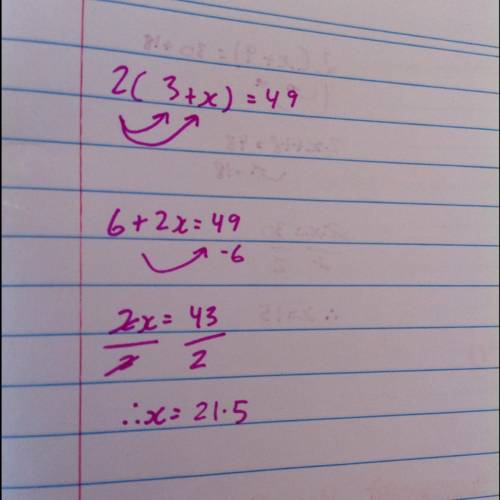 2(3+x)=49
6+2x=49
-6
2x=43
2 2
∴x=21·5